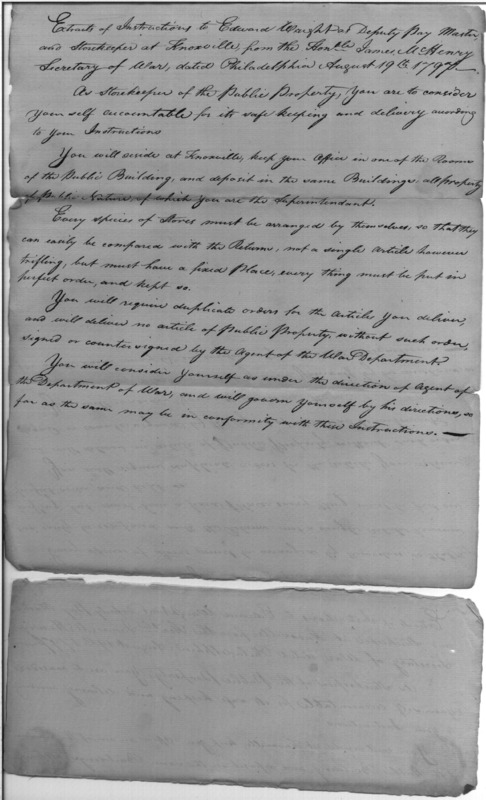 Extracts of Instructions to Edward Waight as Deputy Pay Master
and Storekeeper at Knoxville from the Honble James McHenry
Secretary of War, dated Philadelphia August 19th 1797
As Storekeeper of the Public Property, you are to consider
your self accountable for its safe keeping and delivery according
to your Instructions
You will reside at Knoxville, keep your Office in one of the Rooms
of the Public Building, and deposit in the same Buildings all property
of Public Nature of which you are the Superintendant.
Every species of Stores must be arranged by themselves, so that they
can easily be compared with the Returns, not a single Article however
trifling, but must have a fixed Place, every thing must be put in
perfect order, and kept so.
You will require duplicate orders for the Article you deliver,
and will deliver no article of Public Property, without such order,
signed or countersigned by the Agent of the War Department.
You will consider yourself as under the direction of Agent of
the Department of War, and will govern yourself by his directions, so
far as the same may be in conformity with these Instructions.